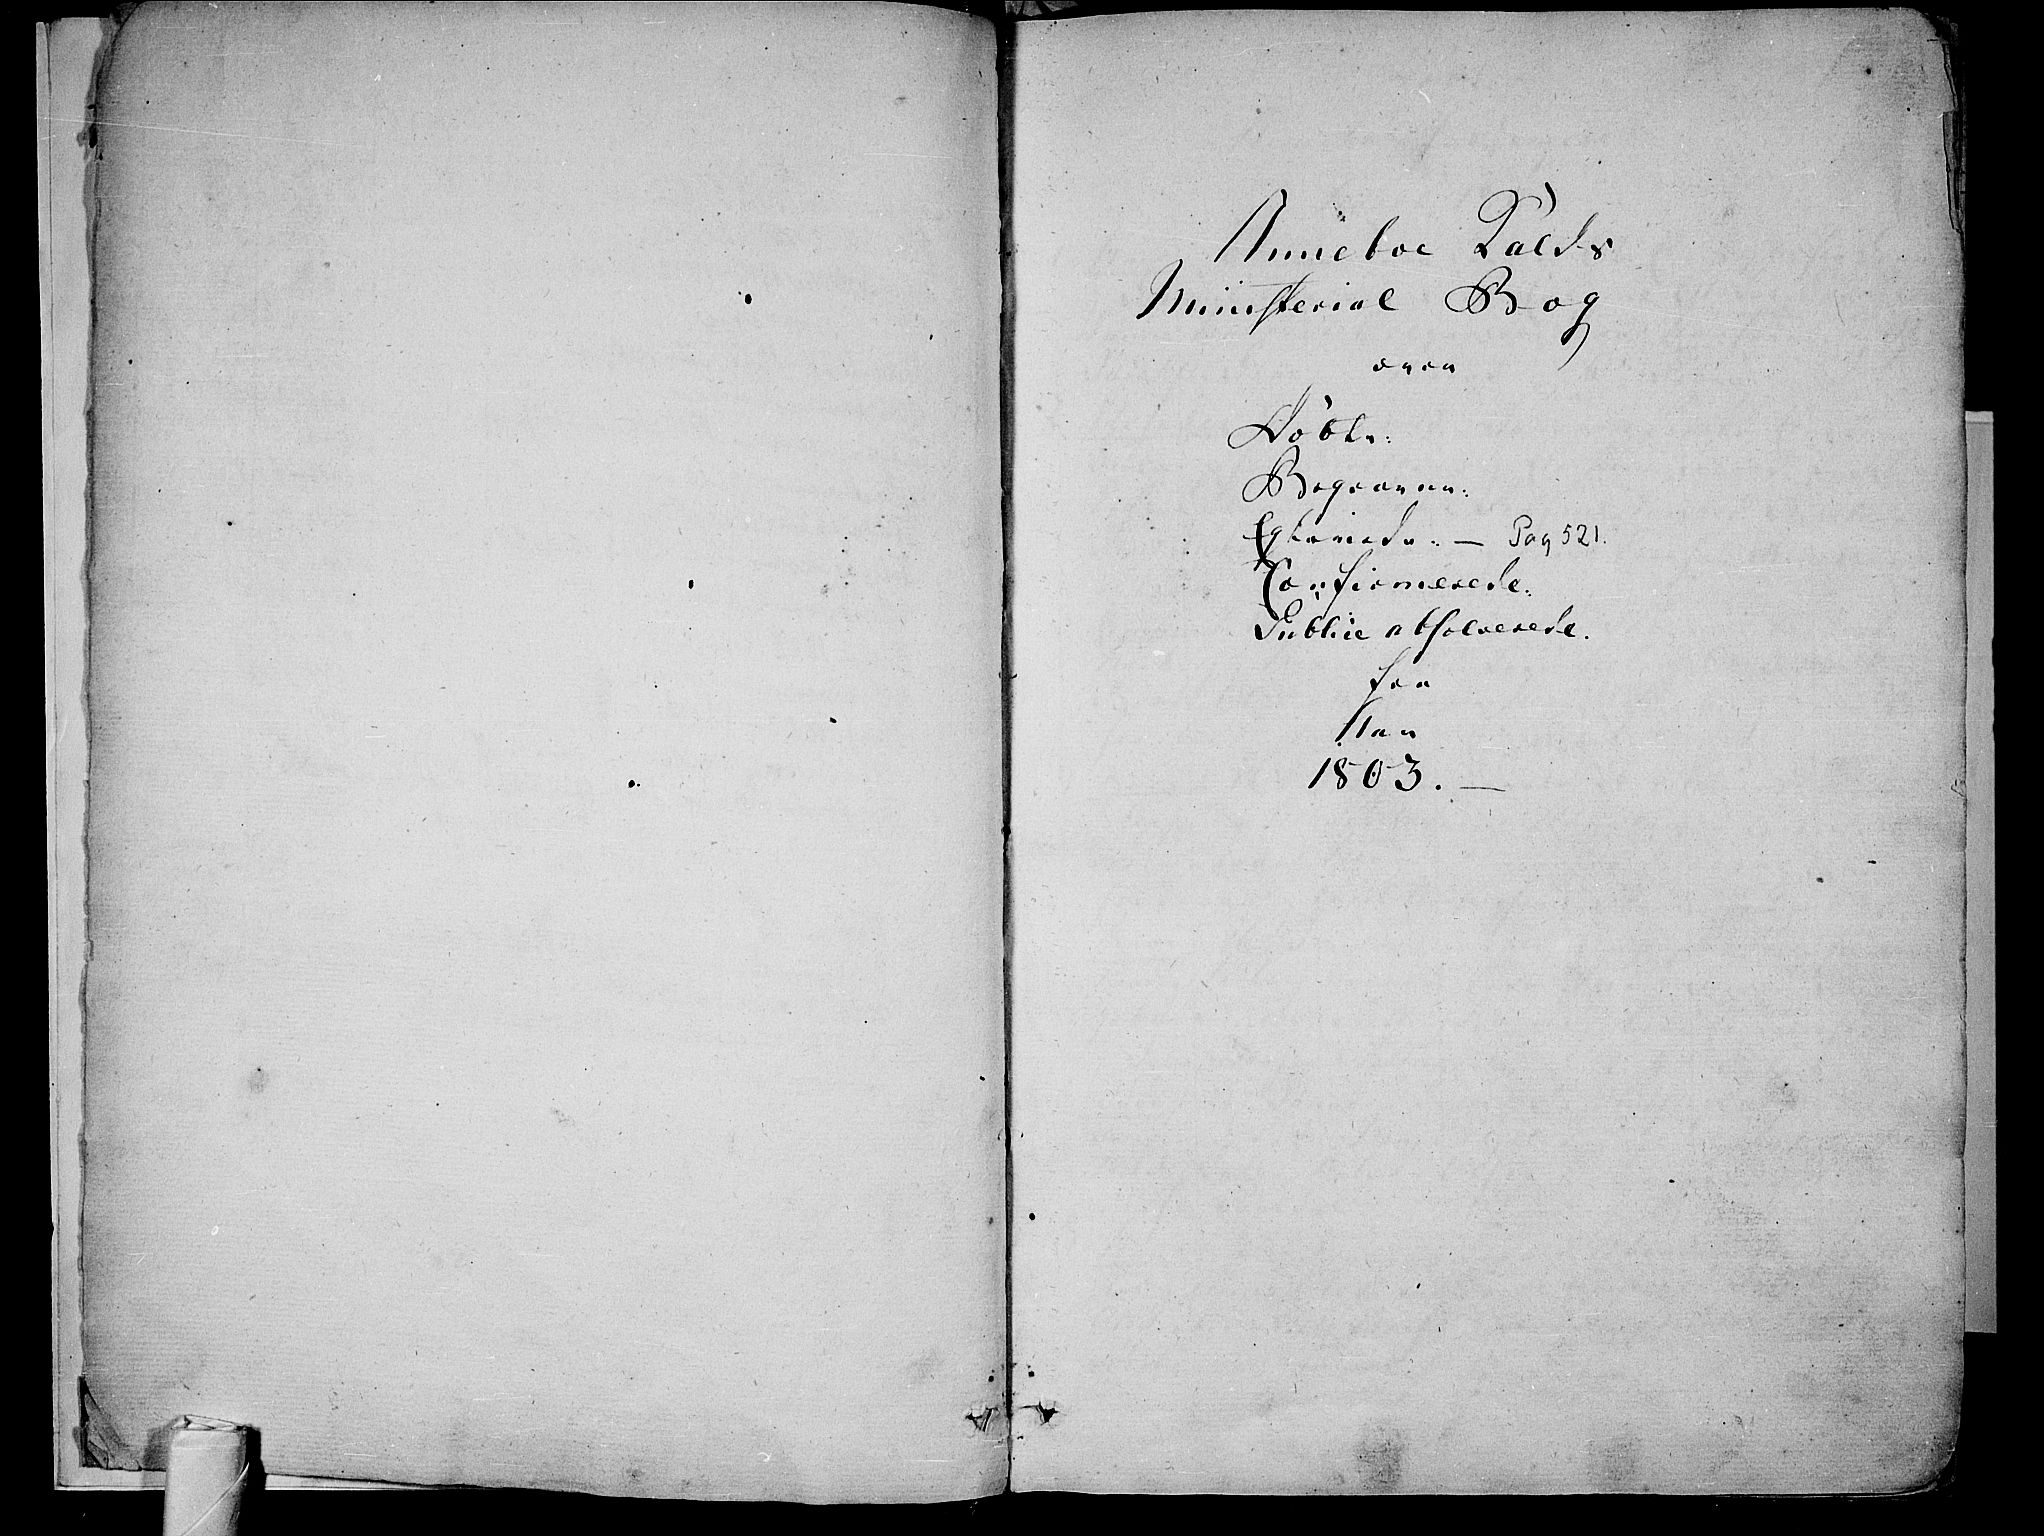 Anneboe Kalds
Ministerial Bog
over
Døbte.
Begravne.
Egteviede. — Pag 521.
Confirmerede.
Publice absolverede.
fra
Aar
1803. —